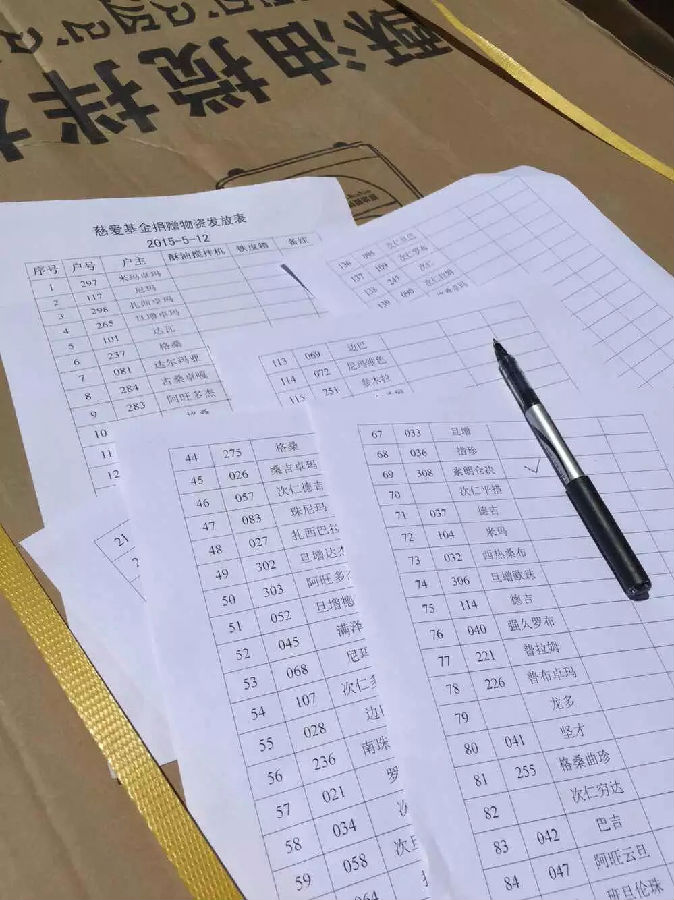 酥油搅拌
慈爱基金捐赠物资发放表
2015-5-12
序号 户号 户主 酥油搅拌机 铁皮箱 备注
1 297 米玛卓玛
2 117 尼玛
3 298 扎西卓玛
4 265 旦增卓玛
5 101 达瓦
6 237 格桑
7 081 达尔玛亚
8 284 古桑卓嘎
9 283 阿旺多杰
10
11
12
136 098
137 109 次仁罗布
138 247 次仁
139 090
113 069 边巴
114 072 尼玛维色
115 251
21
44 275 格桑
45 026 桑吉卓玛
46 057 次仁德吉
47 083 珠尼玛
48 027 扎西巴
49 302 旦增达
50 303 阿旺多
51 052 旦增
52 045 满泽
53 068 尼
54 107 次仁
55 028 边
56 236 南珠
57 021 罗
58 034 次
59 058 次旦
064
67 033 旦增
68 036
69 308 索朗仓决
70 次仁平措
71 037 德吉
72 104 米玛
73 032 四热桑布
74 306 旦增欧珠
75 114 德吉
76 040 强久罗布
77 221 普拉姆
78 226 普布卓玛
79 龙多
80 041 坚才
81 255 格桑曲珍
82 次仁穷达
83 042 巴吉
84 047 阿旺云旦
班旦伦珠